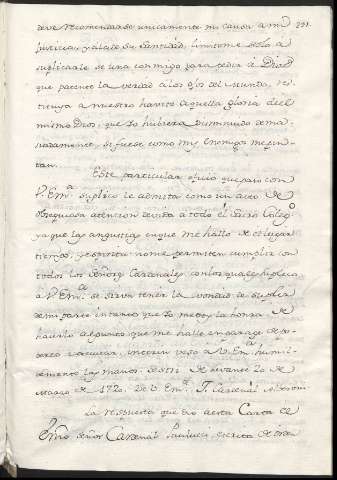 deve recomendarse unicamente mi causa a mi 221.
justicia, y a la de su Santidad, limitome solo à
suplicarle se una conmigo para pedir à Dios
que patente la verdad a los ojos del Mundo, res-
tituya a nuestro havito aquella gloria de el
mismo Dios, que Yo hubiera disminuido dema-
siadamente, si fuese como mis Enemigos me pin-
tan.
Este particular oficio que paso con
V. Em.ª suplico le admita como un acto de
obsequiosa atencion devida a todo el Sacro Colegio
ya que las angustias en que me hallo de el lugar
tiempo, y espiritu no me permiten cumplir con
todos los Señores Cardenales, con los quales suplico
à V. Em.ª se sirva tener la vondad de suplir
de mi parte intanto que Yo tengo la honra de
hacerlo al punto que me halle en parage de po-
derlo executar, interin veso a V. Em.ª humil-
demente las manos. Sestri de Levante 20 de
Marzo de 1720. De V. Em.ª J. Cardenal Alberoni
La respuesta que dio a esta Carta el
Em̃o Señor Cardenal Paulucci, escrita de orn